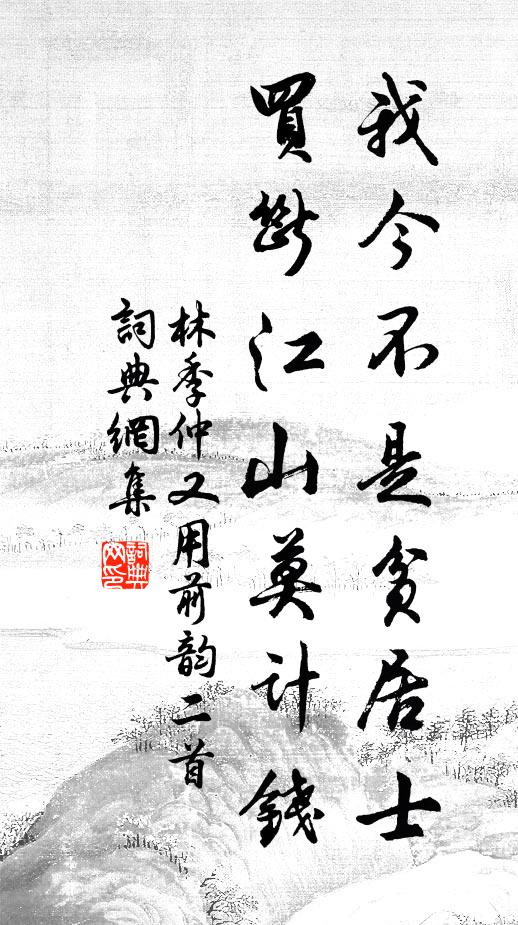 我今不是貧居士
買斷江山莫計錢
林季仲又用前韵二首
詞典網集
詞典网印